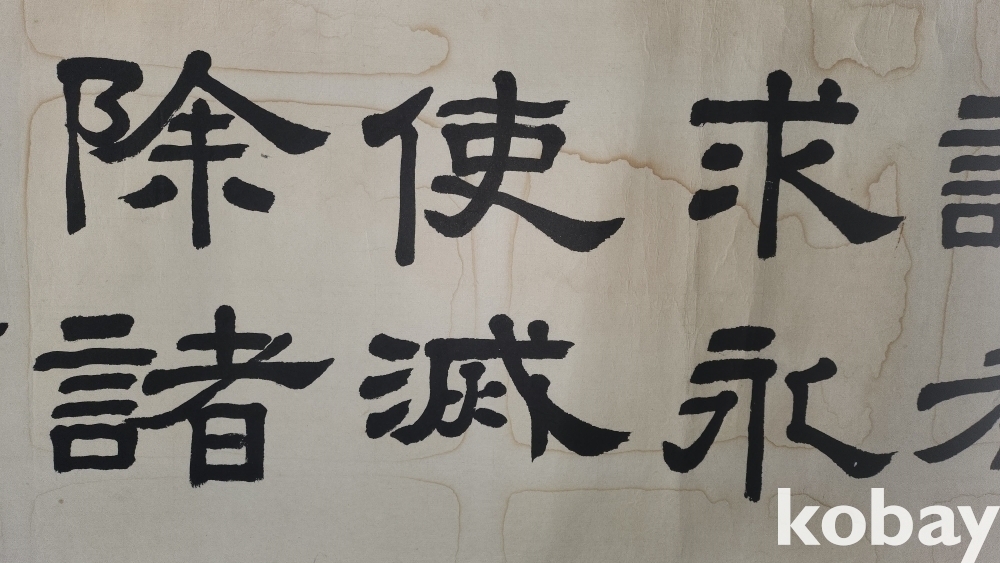 求永
使滅
除諸
kobay